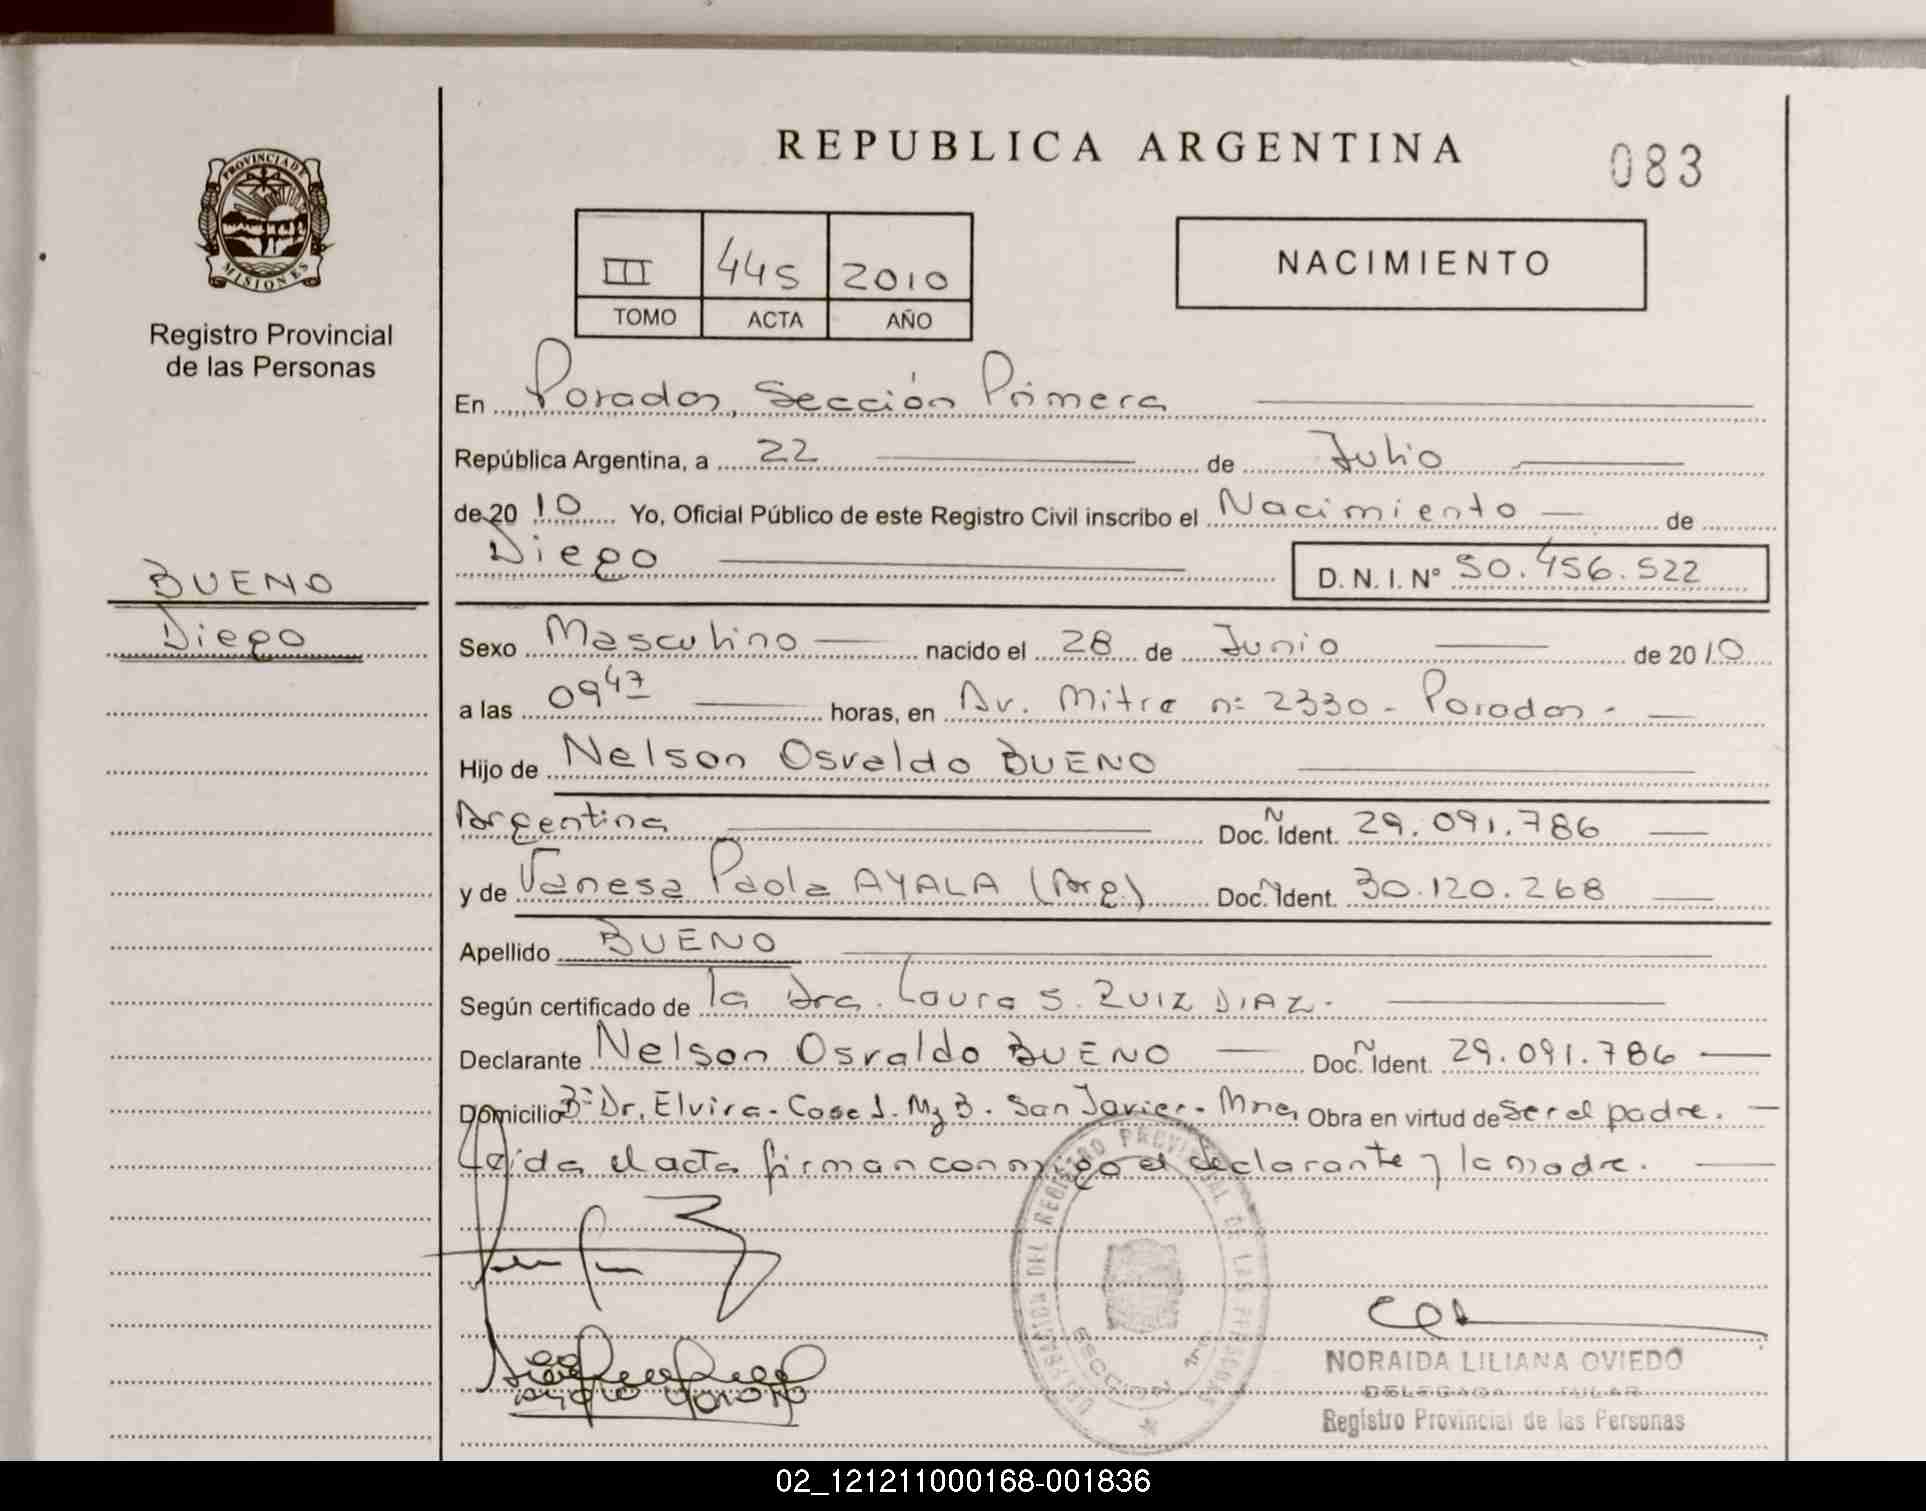 REPUBLICA ARGENTINA
083
PROVINCIA DE
MISIONES
Registro Provincial
de las Personas
III 445 2010
TOMO ACTA AÑO
NACIMIENTO
En Posadas, Sección Primera
República Argentina, a 22 de Julio
de 2010 Yo, Oficial Público de este Registro Civil inscribo el Nacimiento de
Diego D. N. I. Nº 50.456.522
BUENO
Diego
Sexo Masculino nacido el 28 de Junio de 2010
a las 09 47 horas, en Av. Mitre nº 2330 - Posadas -
Hijo de Nelson Osvaldo BUENO
Argentina Doc. N Ident. 29.091.786
y de Vanesa Paola AYALA (Arg.) Doc. N Ident. 30.120.268
Apellido BUENO
Según certificado de la Dra. Laura S. RUIZ DIAZ.
Declarante Nelson Osvaldo BUENO Doc. N Ident. 29.091.786
Domicilio Bº Dr. Elvira - Case 1. Mz B. San Javier - Mnes Obra en virtud de Ser el padre.
Leída el acta firman conmigo el declarante y la madre.
DEL REGISTRO PROVINCIAL DE LAS PERSONAS
SECCION 1ra
NORAIDA LILIANA OVIEDO
DELEGADA TITULAR
Registro Provincial de las Personas
02_121211000168-001836